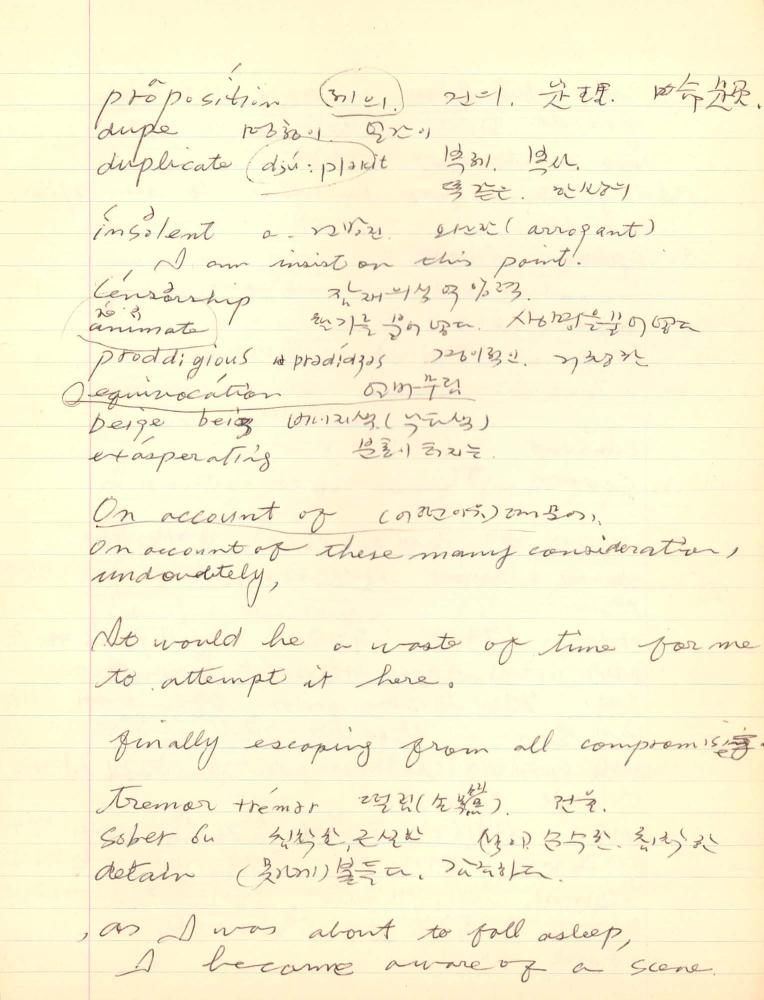 proposition 제의. 건의. 定理. 命題.
dupe 멍청이. 얼간이
duplicate djú:pləkit 복제. 복사.
똑같은. 한쌍의
insolent a. 건방진. 오만한 (arrogant)
I am insist on this point.
Censorship 잠재의식 억압력.
animate 활기를 불어넣다. 생명을 불어넣다
proddigious prədídʒəs 경이적인. 거창한
equivocation 얼버무림
beige beiʒ 베이지색. (낙타색)
exasperating 분통이 터지는.
On account of 때문에.
On account of these many consideration,
undoudetely,
It would be a waste of time for me
to attempt it here.
finally escaping from all
tremor trémər 떨림 (손 ). 전율.
sober 침착한, 근실한 엄숙한. 침착한
detain (못가게) 붙들다. 감금하다.
, as I was about to fall asleep,
I became aware of a scene.